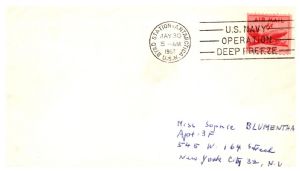 BYRD STATION-ANTARCTICA
JAN 30
5-AM
1961
U.S.N.
U.S. NAVY
OPERATION
DEEP FREEZE
AIR MAIL
Miss Sophie BLUMENTHAL
Apt. 3F
545 W. 164 Street
New York City 32, N.Y